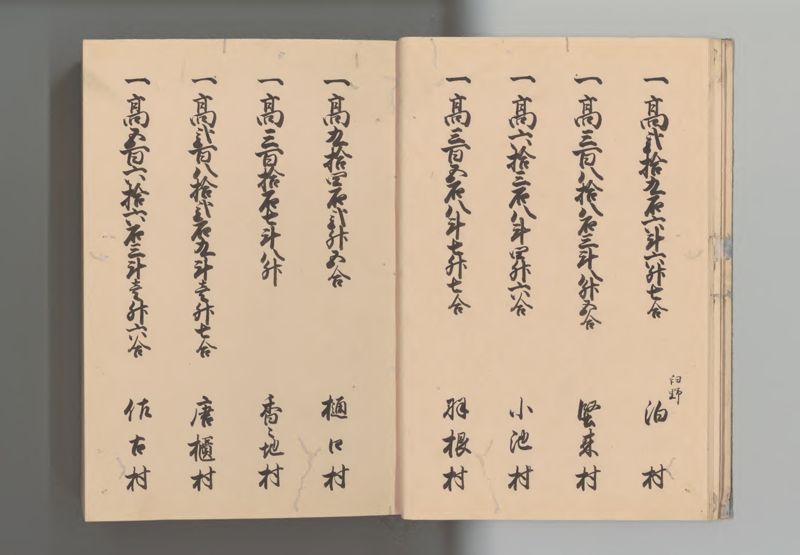 一高弐拾九石六斗六升七合 臼野 泊村
一高三百八拾八石三斗八升五合 堅来村
一高六拾三石八斗四升六合 小池村
一高三百五石八斗七升七合 羽根村
一高九拾四石弐升五合 樋口村
一高三百拾石七斗八升 香々地村
一高弐百八拾弐石九斗壱升七合 唐櫃村
一高五百六拾六石三斗壱升六合 佐古村